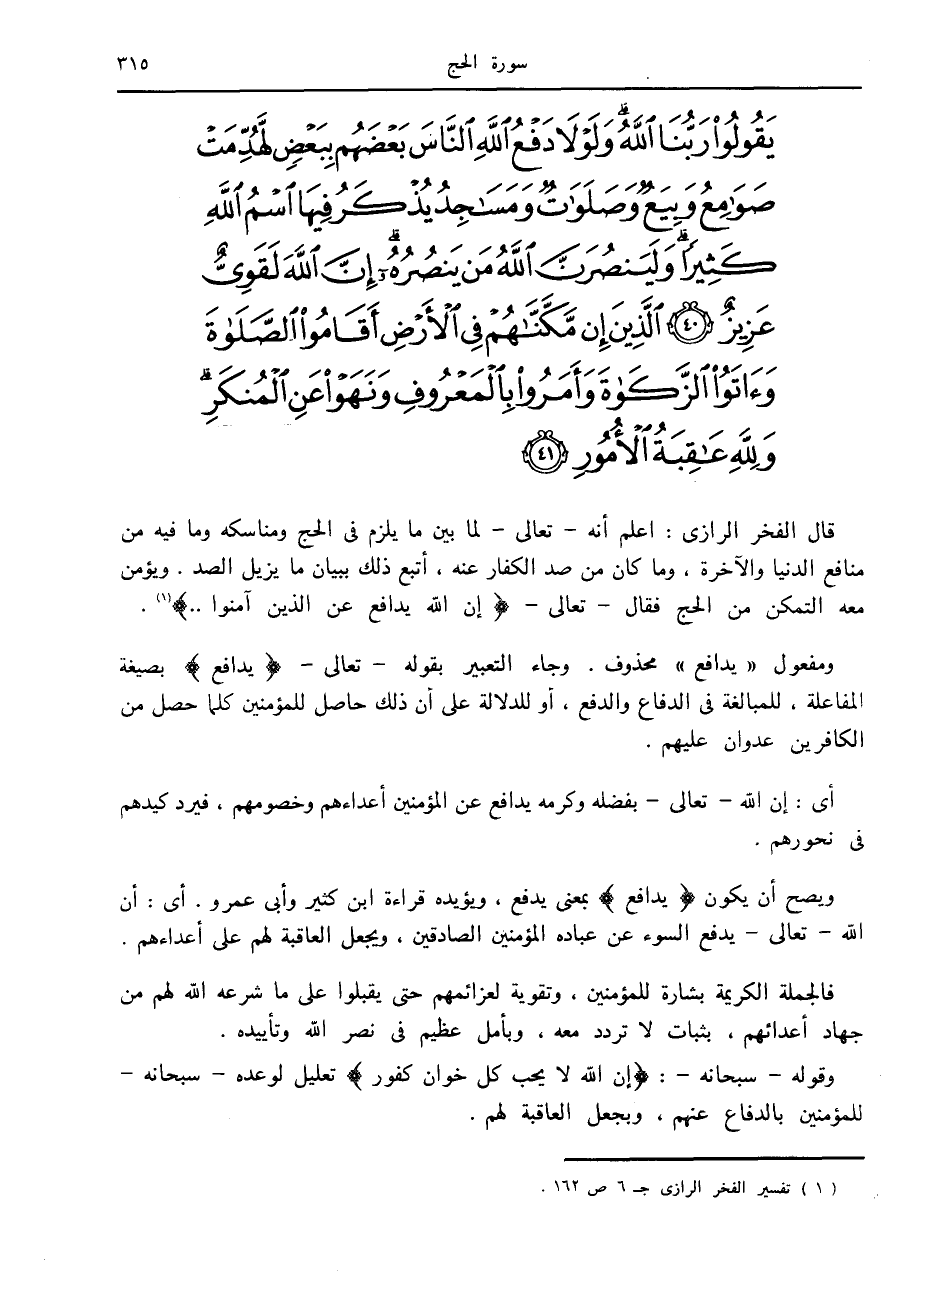 سورة الحج ٣١٥
يَقُولُوا۟ رَبُّنَا ٱللَّهُ ۗ وَلَوْلَا دَفْعُ ٱللَّهِ ٱلنَّاسَ بَعْضَهُم بِبَعْضٍ لَّهُدِّمَتْ
صَوَٰمِعُ وَبِيَعٌ وَصَلَوَٰتٌ وَمَسَٰجِدُ يُذْكَرُ فِيهَا ٱسْمُ ٱللَّهِ
كَثِيرًا ۗ وَلَيَنصُرَنَّ ٱللَّهُ مَن يَنصُرُهُۥٓ ۗ إِنَّ ٱللَّهَ لَقَوِىٌّ
عَزِيزٌ ﴿٤٠﴾ ٱلَّذِينَ إِن مَّكَّنَّٰهُمْ فِى ٱلْأَرْضِ أَقَامُوا۟ ٱلصَّلَوٰةَ
وَءَاتَوُا۟ ٱلزَّكَوٰةَ وَأَمَرُوا۟ بِٱلْمَعْرُوفِ وَنَهَوْا۟ عَنِ ٱلْمُنكَرِ ۗ
وَلِلَّهِ عَٰقِبَةُ ٱلْأُمُورِ ﴿٤١﴾
قال الفخر الرازى : اعلم أنه – تعالى – لما بين ما يلزم فى الحج ومناسكه وما فيه من
منافع الدنيا والآخرة ، وما كان من صد الكفار عنه ، أتبع ذلك ببيان ما يزيل الصد . ويؤمن
معه التمكن من الحج فقال – تعالى – ﴿ إن الله يدافع عن الذين آمنوا ..﴾(١) .
ومفعول « يدافع » محذوف . وجاء التعبير بقوله – تعالى – ﴿ يدافع ﴾ بصيغة
المفاعلة ، للمبالغة فى الدفاع والدفع ، أو للدلالة على أن ذلك حاصل للمؤمنين كلما حصل من
الكافرين عدوان عليهم .
أى : إن الله – تعالى – بفضله وكرمه يدافع عن المؤمنين أعداءهم وخصومهم ، فيرد كيدهم
فى نحورهم .
ويصح أن يكون ﴿ يدافع ﴾ بمعنى يدفع ، ويؤيده قراءة ابن كثير وأبى عمرو . أى : أن
الله – تعالى – يدفع السوء عن عباده المؤمنين الصادقين ، ويجعل العاقبة لهم على أعداءهم .
فالجملة الكريمة بشارة للمؤمنين ، وتقوية لعزائمهم حتى يقبلوا على ما شرعه الله لهم من
جهاد أعدائهم ، بثبات لا تردد معه ، وبأمل عظيم فى نصر الله وتأييده .
وقوله – سبحانه – : ﴿إن الله لا يحب كل خوان كفور ﴾ تعليل لوعده – سبحانه –
للمؤمنين بالدفاع عنهم ، وبجعل العاقبة لهم .
( ١ ) تفسير الفخر الرازى جـ ٦ ص ١٦٢ .